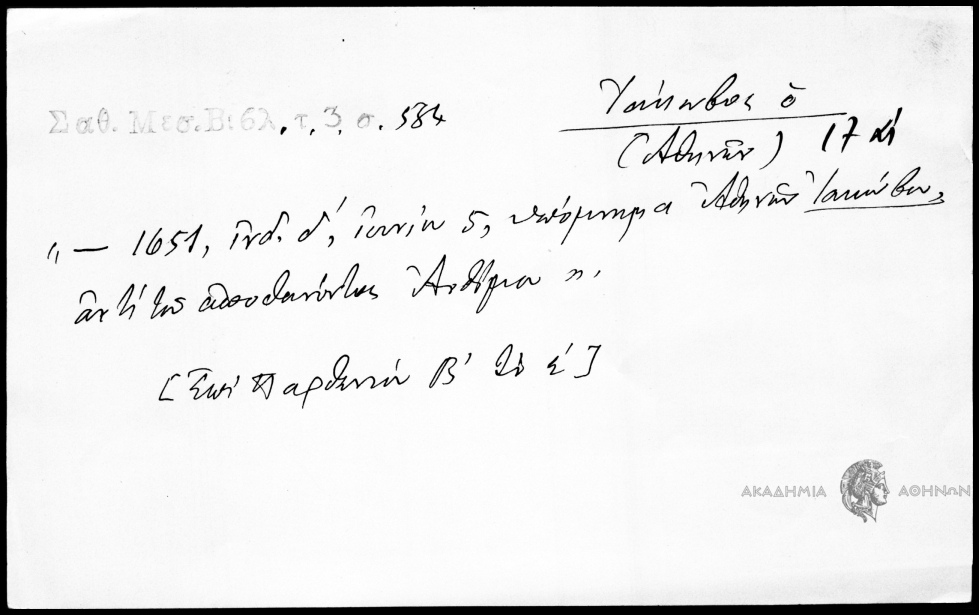 Σαθ. Μεσ. Βιβλ. τ. 3. σ. 584
Ἰάκωβος ὁ
(Ἀθηνῶν) 17 αἰ
"— 1651, ἰνδ. δ', ἰουνίου 5, ὑπόμνημα Ἀθηνῶν Ἰακώβου,
ἀντὶ τοῦ ἀποθανόντος Ἀνθίμου".
[Ἐπὶ Παρθενίου Β' τὸ
ΑΚΑΔΗΜΙΑ ΑΘΗΝΩΝ